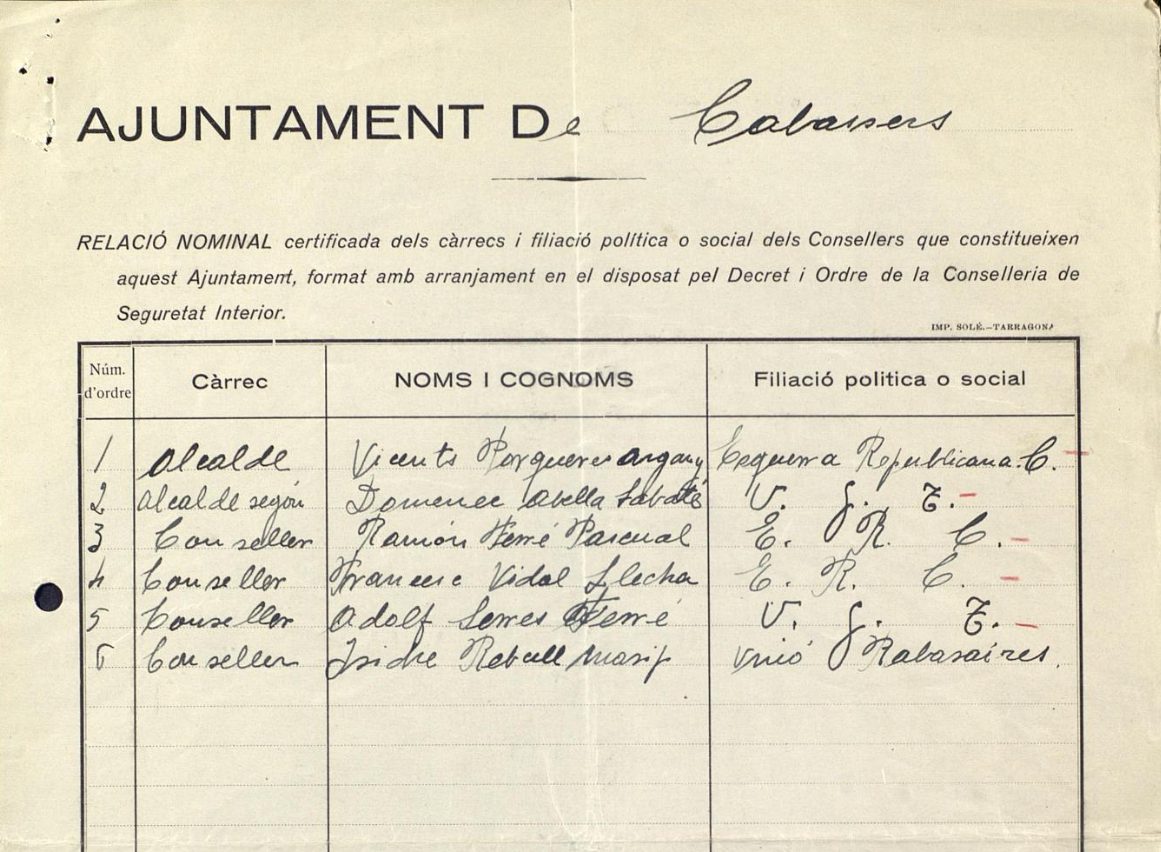 AJUNTAMENT De Cabassers
RELACIÓ NOMINAL certificada dels càrrecs i filiació política o social dels Consellers que constitueixen
aquest Ajuntament, format amb arranjament en el disposat pel Decret i Ordre de la Conselleria de
Seguretat Interior.
IMP. SOLÉ.—TARRAGONA
Núm. d'ordre Càrrec NOMS I COGNOMS Filiació politica o social
1 Alcalde Vicents Porqueres Argany Esquerra Republicana. C.
2 Alcalde segón Domenec Abella Sabaté U. G. T.
3 Conseller Ramón Ferré Pascual E. R. C.
4 Conseller Francesc Vidal Llecha E. R. C.
5 Conseller Adolf Serres Ferré U. G. T.
6 Conseller Isidre Rebull Masip Unió Rabasaires.